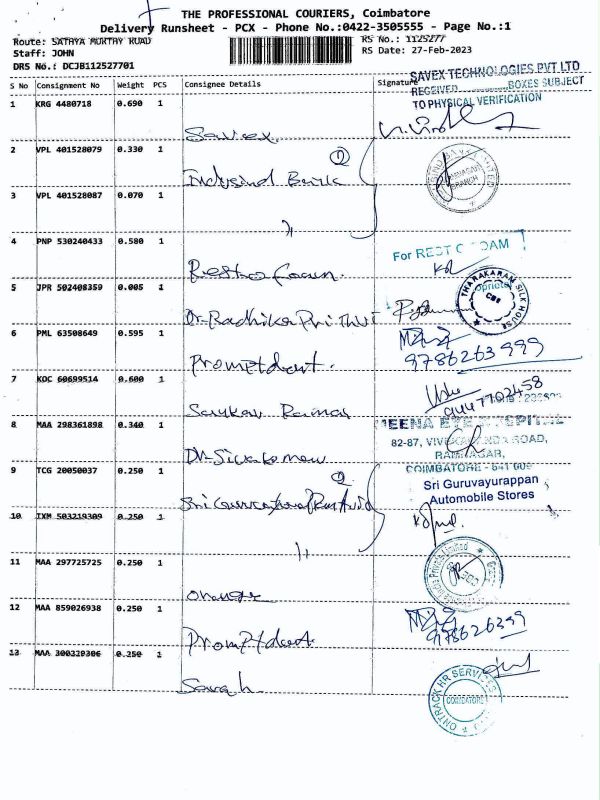 THE PROFESSIONAL COURIERS, Coimbatore
Delivery Runsheet - PCX - Phone No.:0422-3505555 - Page No.:1
Route: SATHYA MURTHY ROAD
Staff: JOHN
DRS No.: DCJB112527701
RS No.: 11252777
RS Date: 27-Feb-2023
S No Consignment No Weight PCS Consignee Details Signature
SAVEX TECHNOLOGIES PVT LTD
RECEIVED BOXES SUBJECT
TO PHYSICAL VERIFICATION
1 KRG 4480718 0.690 1
Savex
2 VPL 401528079 0.330 1
Indusind Bank
3 VPL 401528087 0.070 1
4 PNP 530240433 0.580 1
For REST
5 JPR 502408359 0.005 1
THARAKARAM SILK HOUSE
CBE
Dr. Radhika
6 PML 63508649 0.595 1
9786263999
Promptdent.
7 KOC 60699514 0.600 1
9447702458
8 MAA 298361898 0.340 1
MEENA EYE HOSPITAL
82-87, ROAD,
RAMNAGAR,
COIMBATORE - 641 009
9 TCG 20050037 0.250 1
Sri Guruvayurappan
Automobile Stores
10 IXM 503219309 0.250 1
11 MAA 297725725 0.250 1
Private Limited
Orange
12 MAA 859026938 0.250 1
Promptdent.
13 MAA 300329306 0.250 1
ONTRACK HR SERVICES